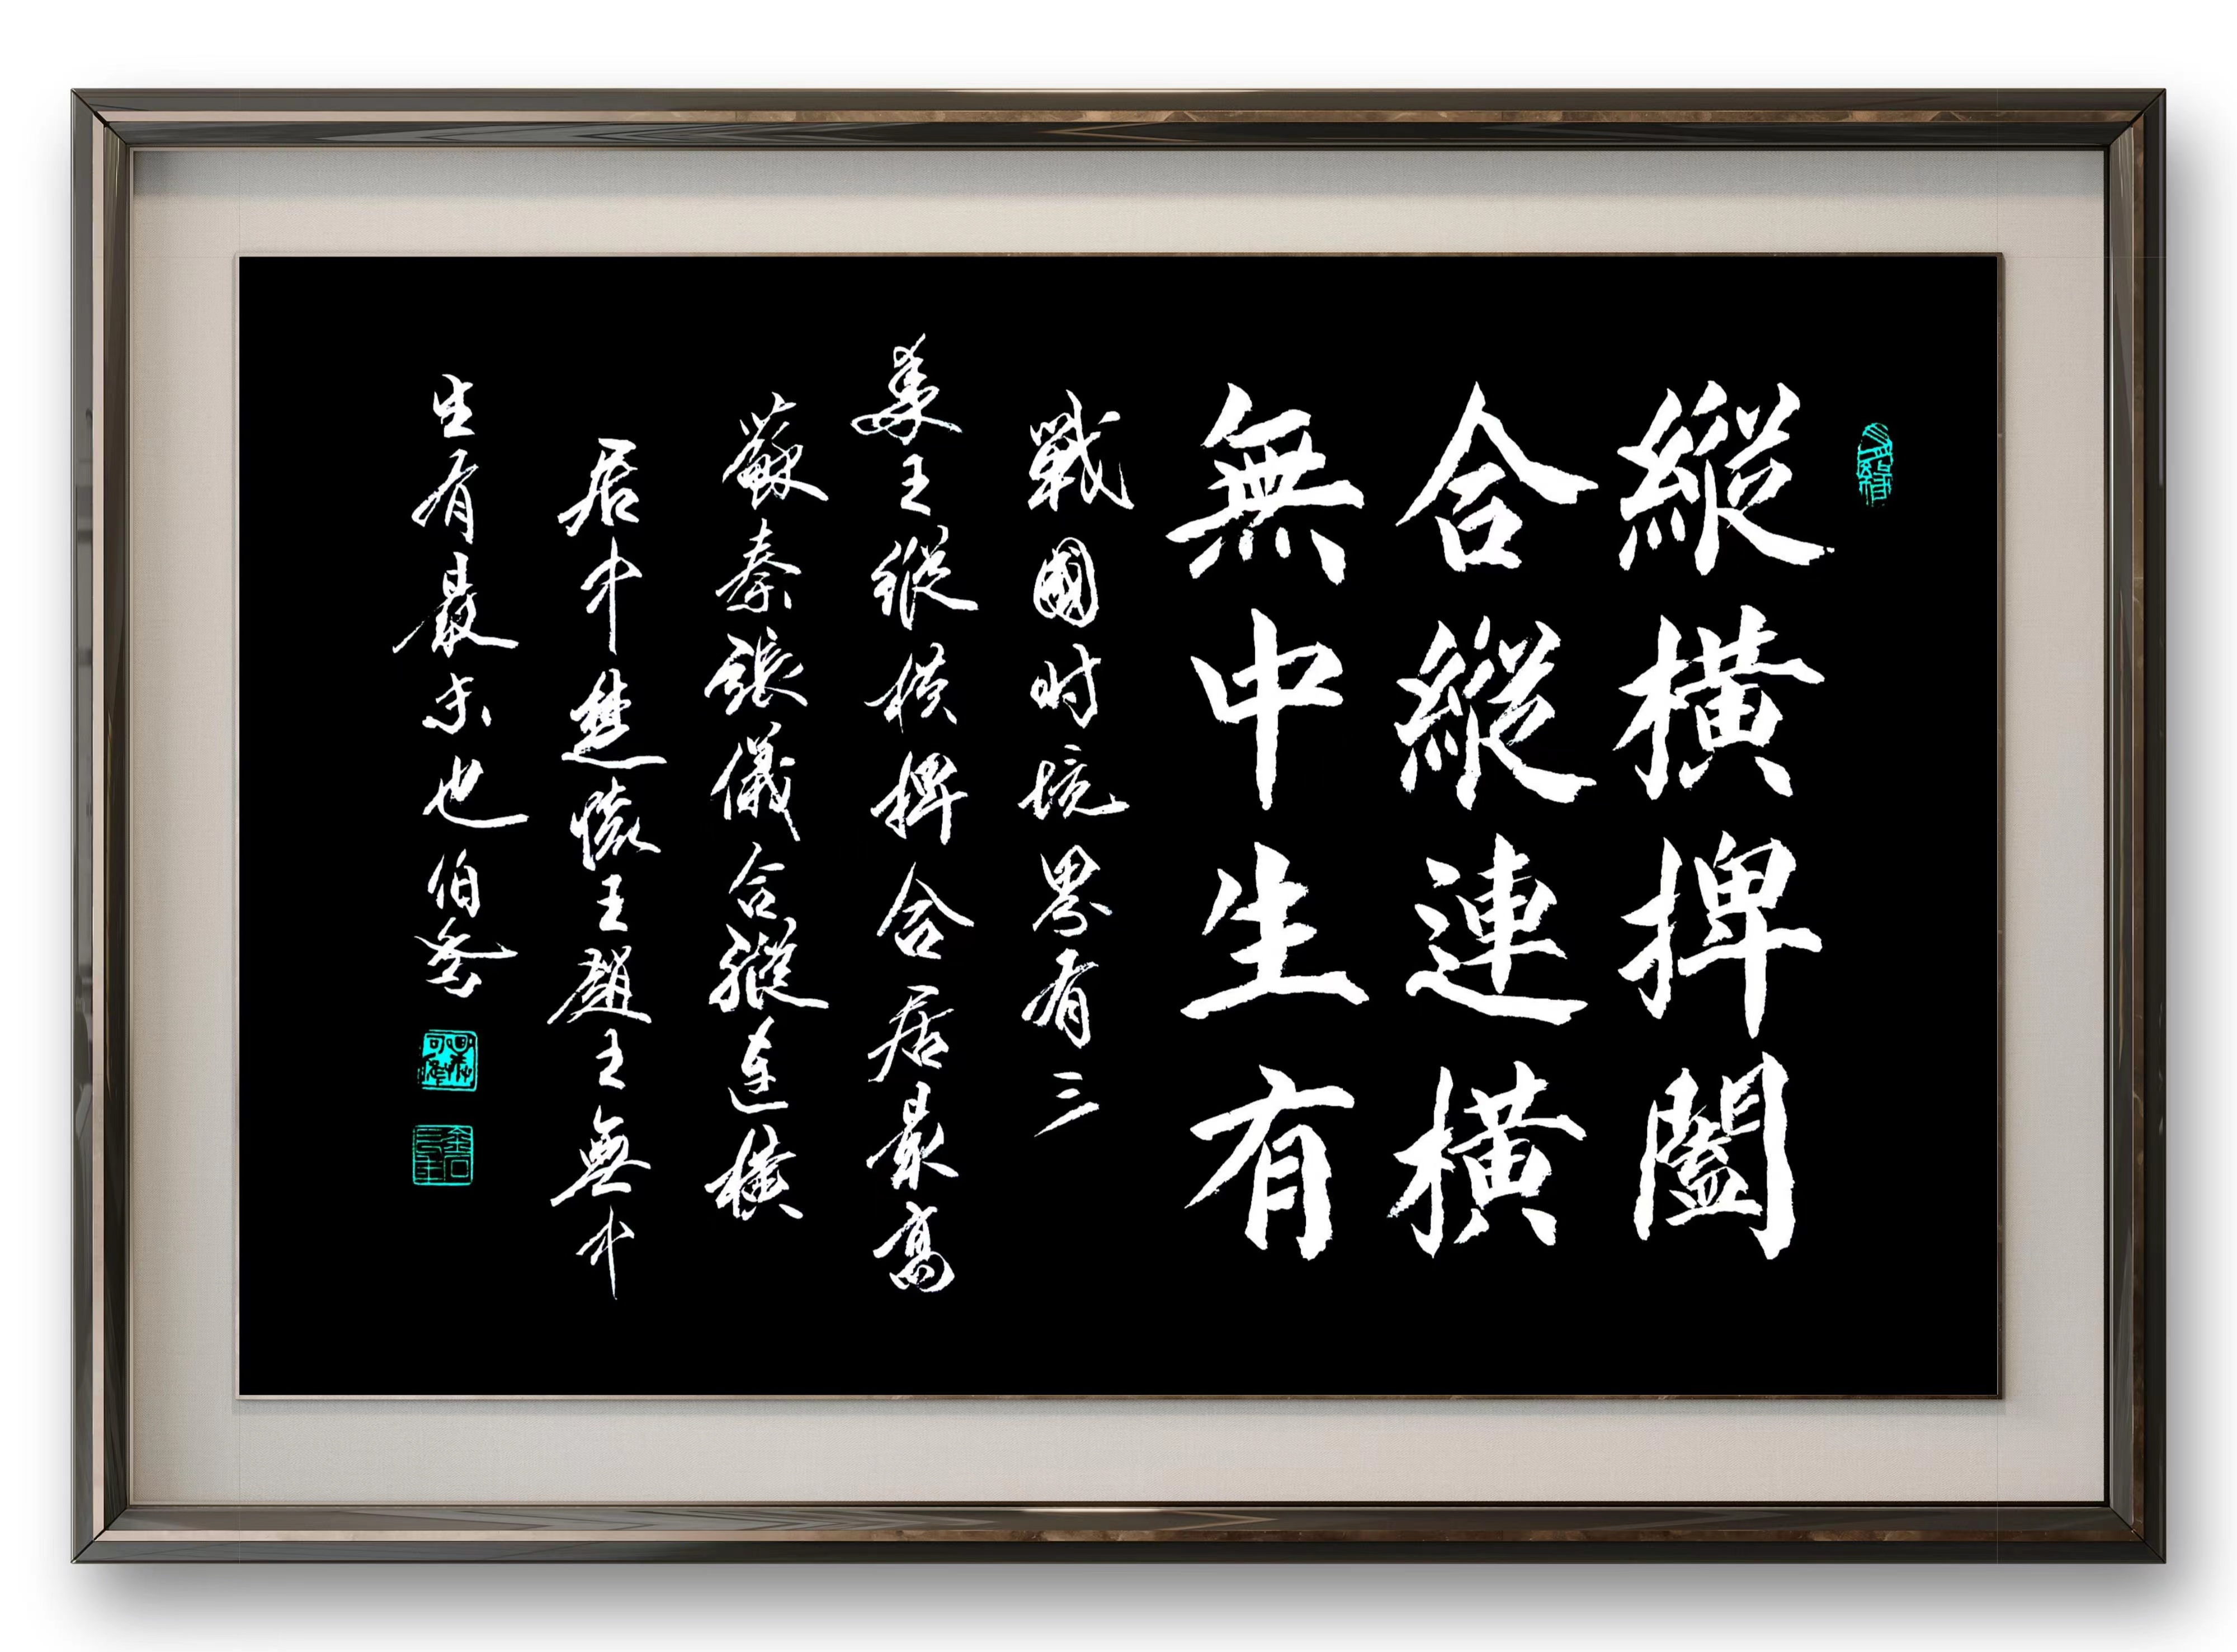 縱橫捭闔
合縱連橫
無中生有
戰國时境界有三
姜王縱横捭合居最高
蘇秦張儀合縱连橫
居中楚懷王趙王無中
生有最末也伯岑